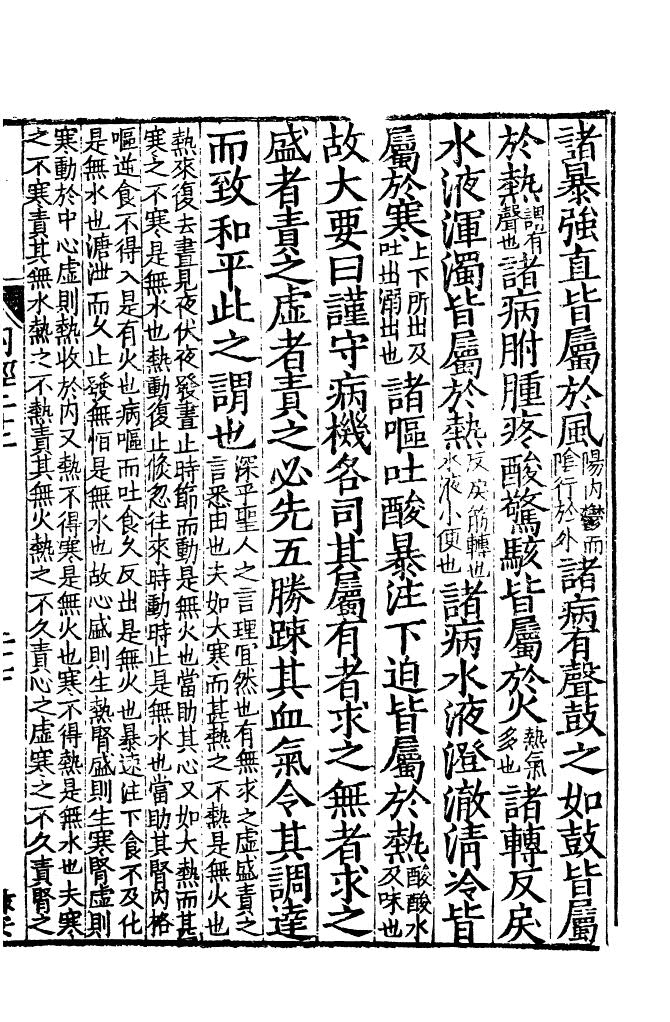 諸暴強直皆屬於風陽内鬱而陰行於外諸病有聲鼓之如鼓皆屬
於熱謂有聲也諸病胕腫疼酸驚駭皆屬於火熱氣多也諸轉反戾
水液渾濁皆屬於熱反戾筋轉也水液小便也諸病水液澄澈清冷皆
屬於寒上下所出及吐出溺出也諸嘔吐酸暴注下迫皆屬於熱酸酸水及味也
故大要曰謹守病機各司其屬有者求之無者求之
盛者責之虛者責之必先五勝踈其血氣令其調達
而致和平此之謂也深乎聖人之言理宜然也有無求之虛盛責之言悉由也夫如大寒而甚熱之不熱是無火也
熱來復去晝見夜伏夜發晝止時節而動是無火也當助其心又如大熱而甚
寒之不寒是無水也熱動復止倏忽往來時動時止是無水也當助其腎内格
嘔逆食不得入是有火也病嘔而吐食久反出是無火也暴速注下食不及化
是無水也溏泄而久止發無恒是無水也故心盛則生熱腎盛則生寒腎虛則
寒動於中心虛則熱收於内又熱不得寒是無火也寒不得熱是無水也夫寒
之不寒責其無水熱之不熱責其無火熱之不久責心之虛寒之不久責腎之
内經二十二
二十七